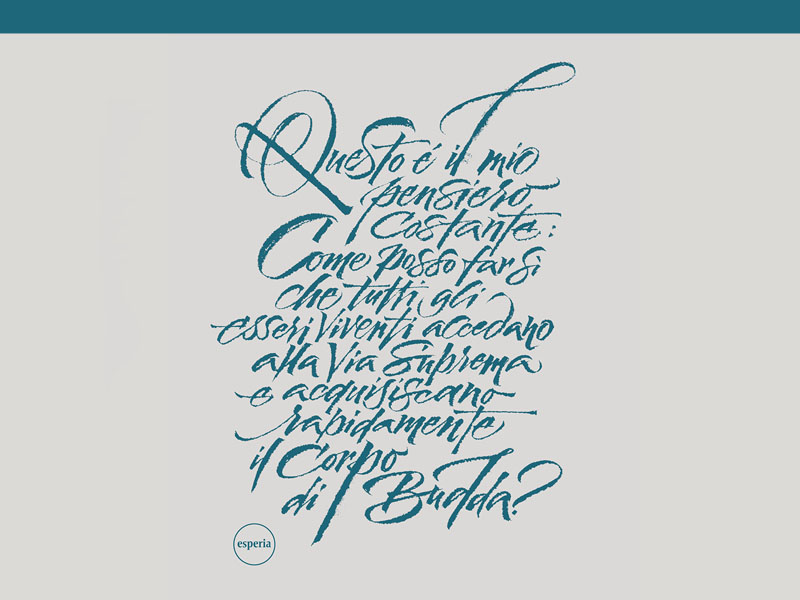 Questo é il mio
pensiero
costante:
Come posso far sì
che tutti gli
esseri viventi accedano
alla Via Suprema
e acquisiscano
rapidamente
il Corpo
di Budda?
esperia